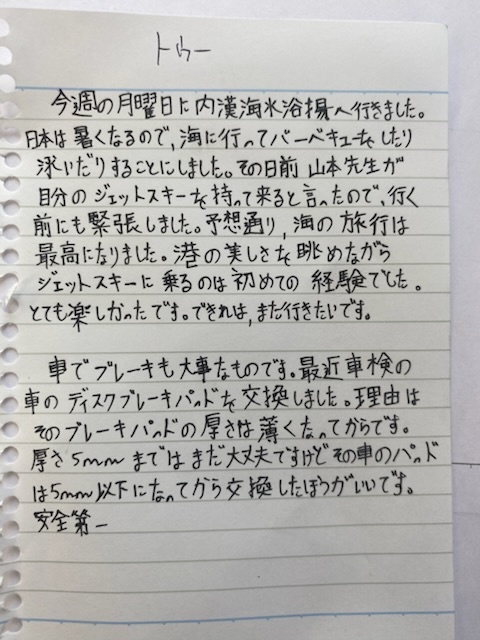 トゥー
今週の月曜日に内漢海水浴揚へ行きました。
日本は暑くなるので、海に行ってバーベキューをしたり
泳いだりすることにしました。その日前 山本先生が
自分のジェットスキーを持って来ると言ったので、行く
前にも緊張しました。予想通り, 海の旅行は
最高になりました。港の美しさを眺めながら
ジェットスキーに乗るのは初めての経験でした。
とても楽しかったです。できれば, また行きたいです。
車でブレーキも大事なものです。最近車検の
車のディスクブレーキパッドを交換しました。理由は
そのブレーキパッドの厚さは薄くなってからです。
厚さ5mmまではまだ大丈夫ですけどその車のパッド
は5mm以下になってから交換したほうがいいです。
安全第一